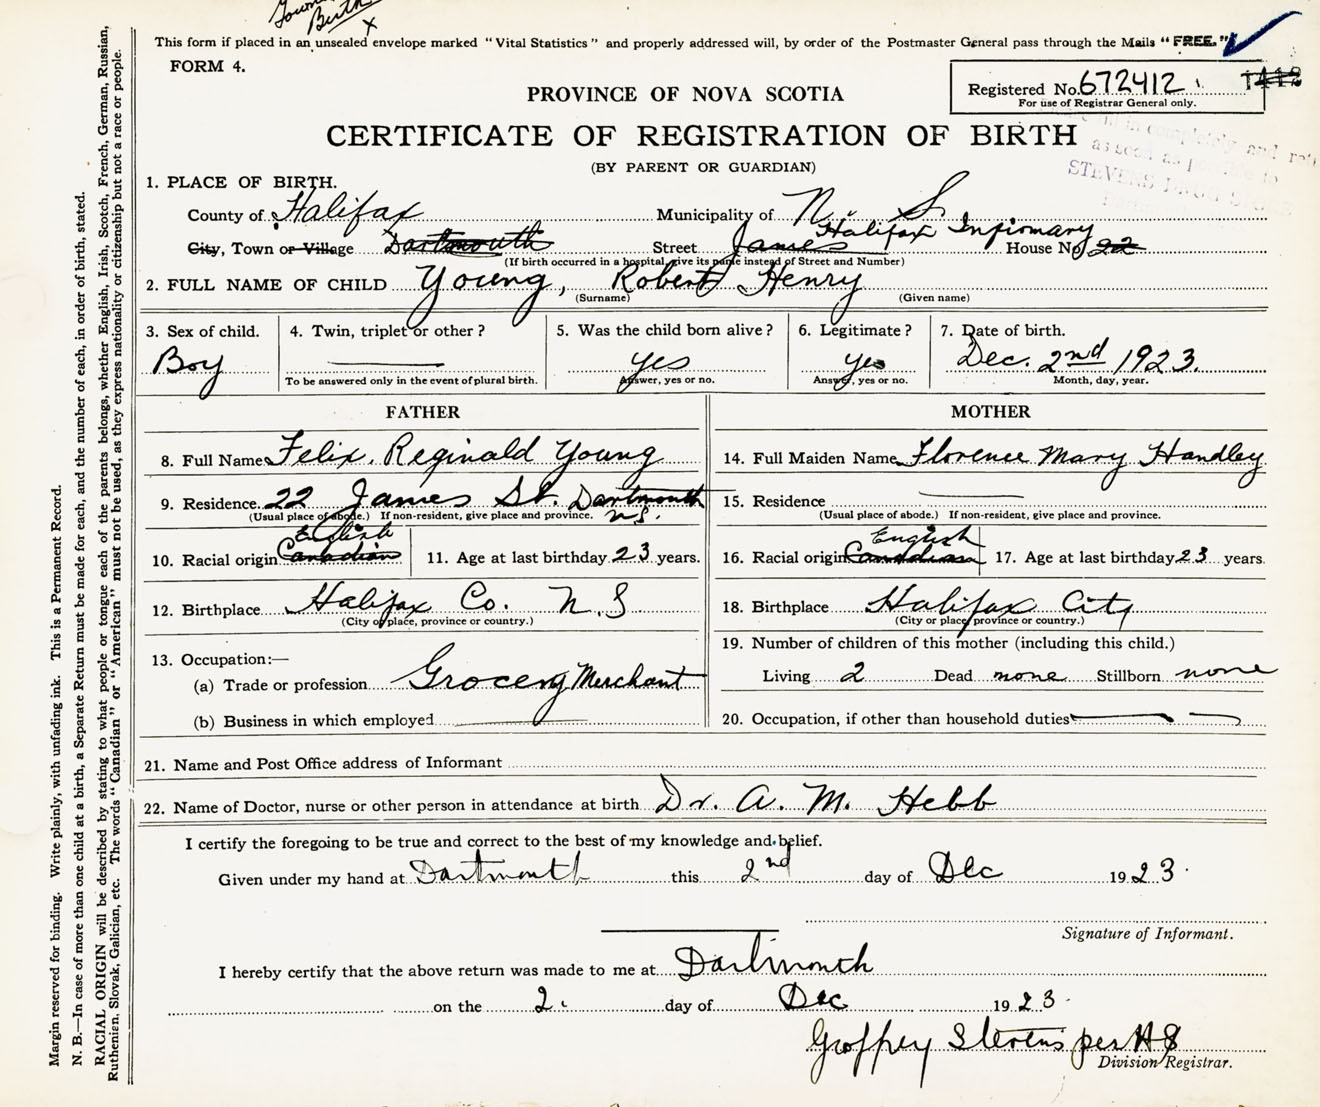 Town
Birth
x
This form if placed in an unsealed envelope marked "Vital Statistics" and properly addressed will, by order of the Postmaster General pass through the Mails "FREE."
FORM 4.
Registered No. 672412 1412
For use of Registrar General only.
PROVINCE OF NOVA SCOTIA
CERTIFICATE OF REGISTRATION OF BIRTH
(BY PARENT OR GUARDIAN)
fill in completely and
as soon as possible to
STEVENS DRUG STORE
1. PLACE OF BIRTH.
County of Halifax Municipality of N. S.
Halifax Infirmary
City, Town or Village Dartmouth Street James House No. 22
(If birth occurred in a hospital, give its name instead of Street and Number)
2. FULL NAME OF CHILD Young, Robert Henry
(Surname) (Given name)
3. Sex of child. 4. Twin, triplet or other? 5. Was the child born alive? 6. Legitimate? 7. Date of birth.
Boy yes yes Dec. 2nd 1923.
To be answered only in the event of plural birth. Answer, yes or no. Answer, yes or no. Month, day, year.
FATHER MOTHER
8. Full Name Felix Reginald Young 14. Full Maiden Name Florence Mary Handley
9. Residence 22 James St. Dartmouth 15. Residence
(Usual place of abode.) If non-resident, give place and province. N.S. (Usual place of abode.) If non-resident, give place and province.
English English
10. Racial origin Canadian 11. Age at last birthday 23 years. 16. Racial origin Canadian 17. Age at last birthday 23 years.
12. Birthplace Halifax Co. N.S 18. Birthplace Halifax City
(City or place, province or country.) (City or place, province or country.)
13. Occupation:— 19. Number of children of this mother (including this child.)
(a) Trade or profession Grocery Merchant Living 2 Dead none Stillborn none
(b) Business in which employed 20. Occupation, if other than household duties
21. Name and Post Office address of Informant
22. Name of Doctor, nurse or other person in attendance at birth Dr. A. M. Hebb
I certify the foregoing to be true and correct to the best of my knowledge and belief.
Given under my hand at Dartmouth this 2nd day of Dec 1923.
Signature of Informant.
I hereby certify that the above return was made to me at Dartmouth
on the 2. day of Dec 1923.
Geoffrey Stevens per HS
Division Registrar.
Margin reserved for binding. Write plainly, with unfading ink. This is a Permanent Record.
N. B.—In case of more than one child at a birth, a Separate Return must be made for each, and the number of each, in order of birth, stated.
RACIAL ORIGIN will be described by stating to what people or tongue each of the parents belongs, whether English, Irish, Scotch, French, German, Russian,
Ruthenien, Slovak, Galician, etc. The words "Canadian" or "American" must not be used, as they express nationality or citizenship but not a race or people.